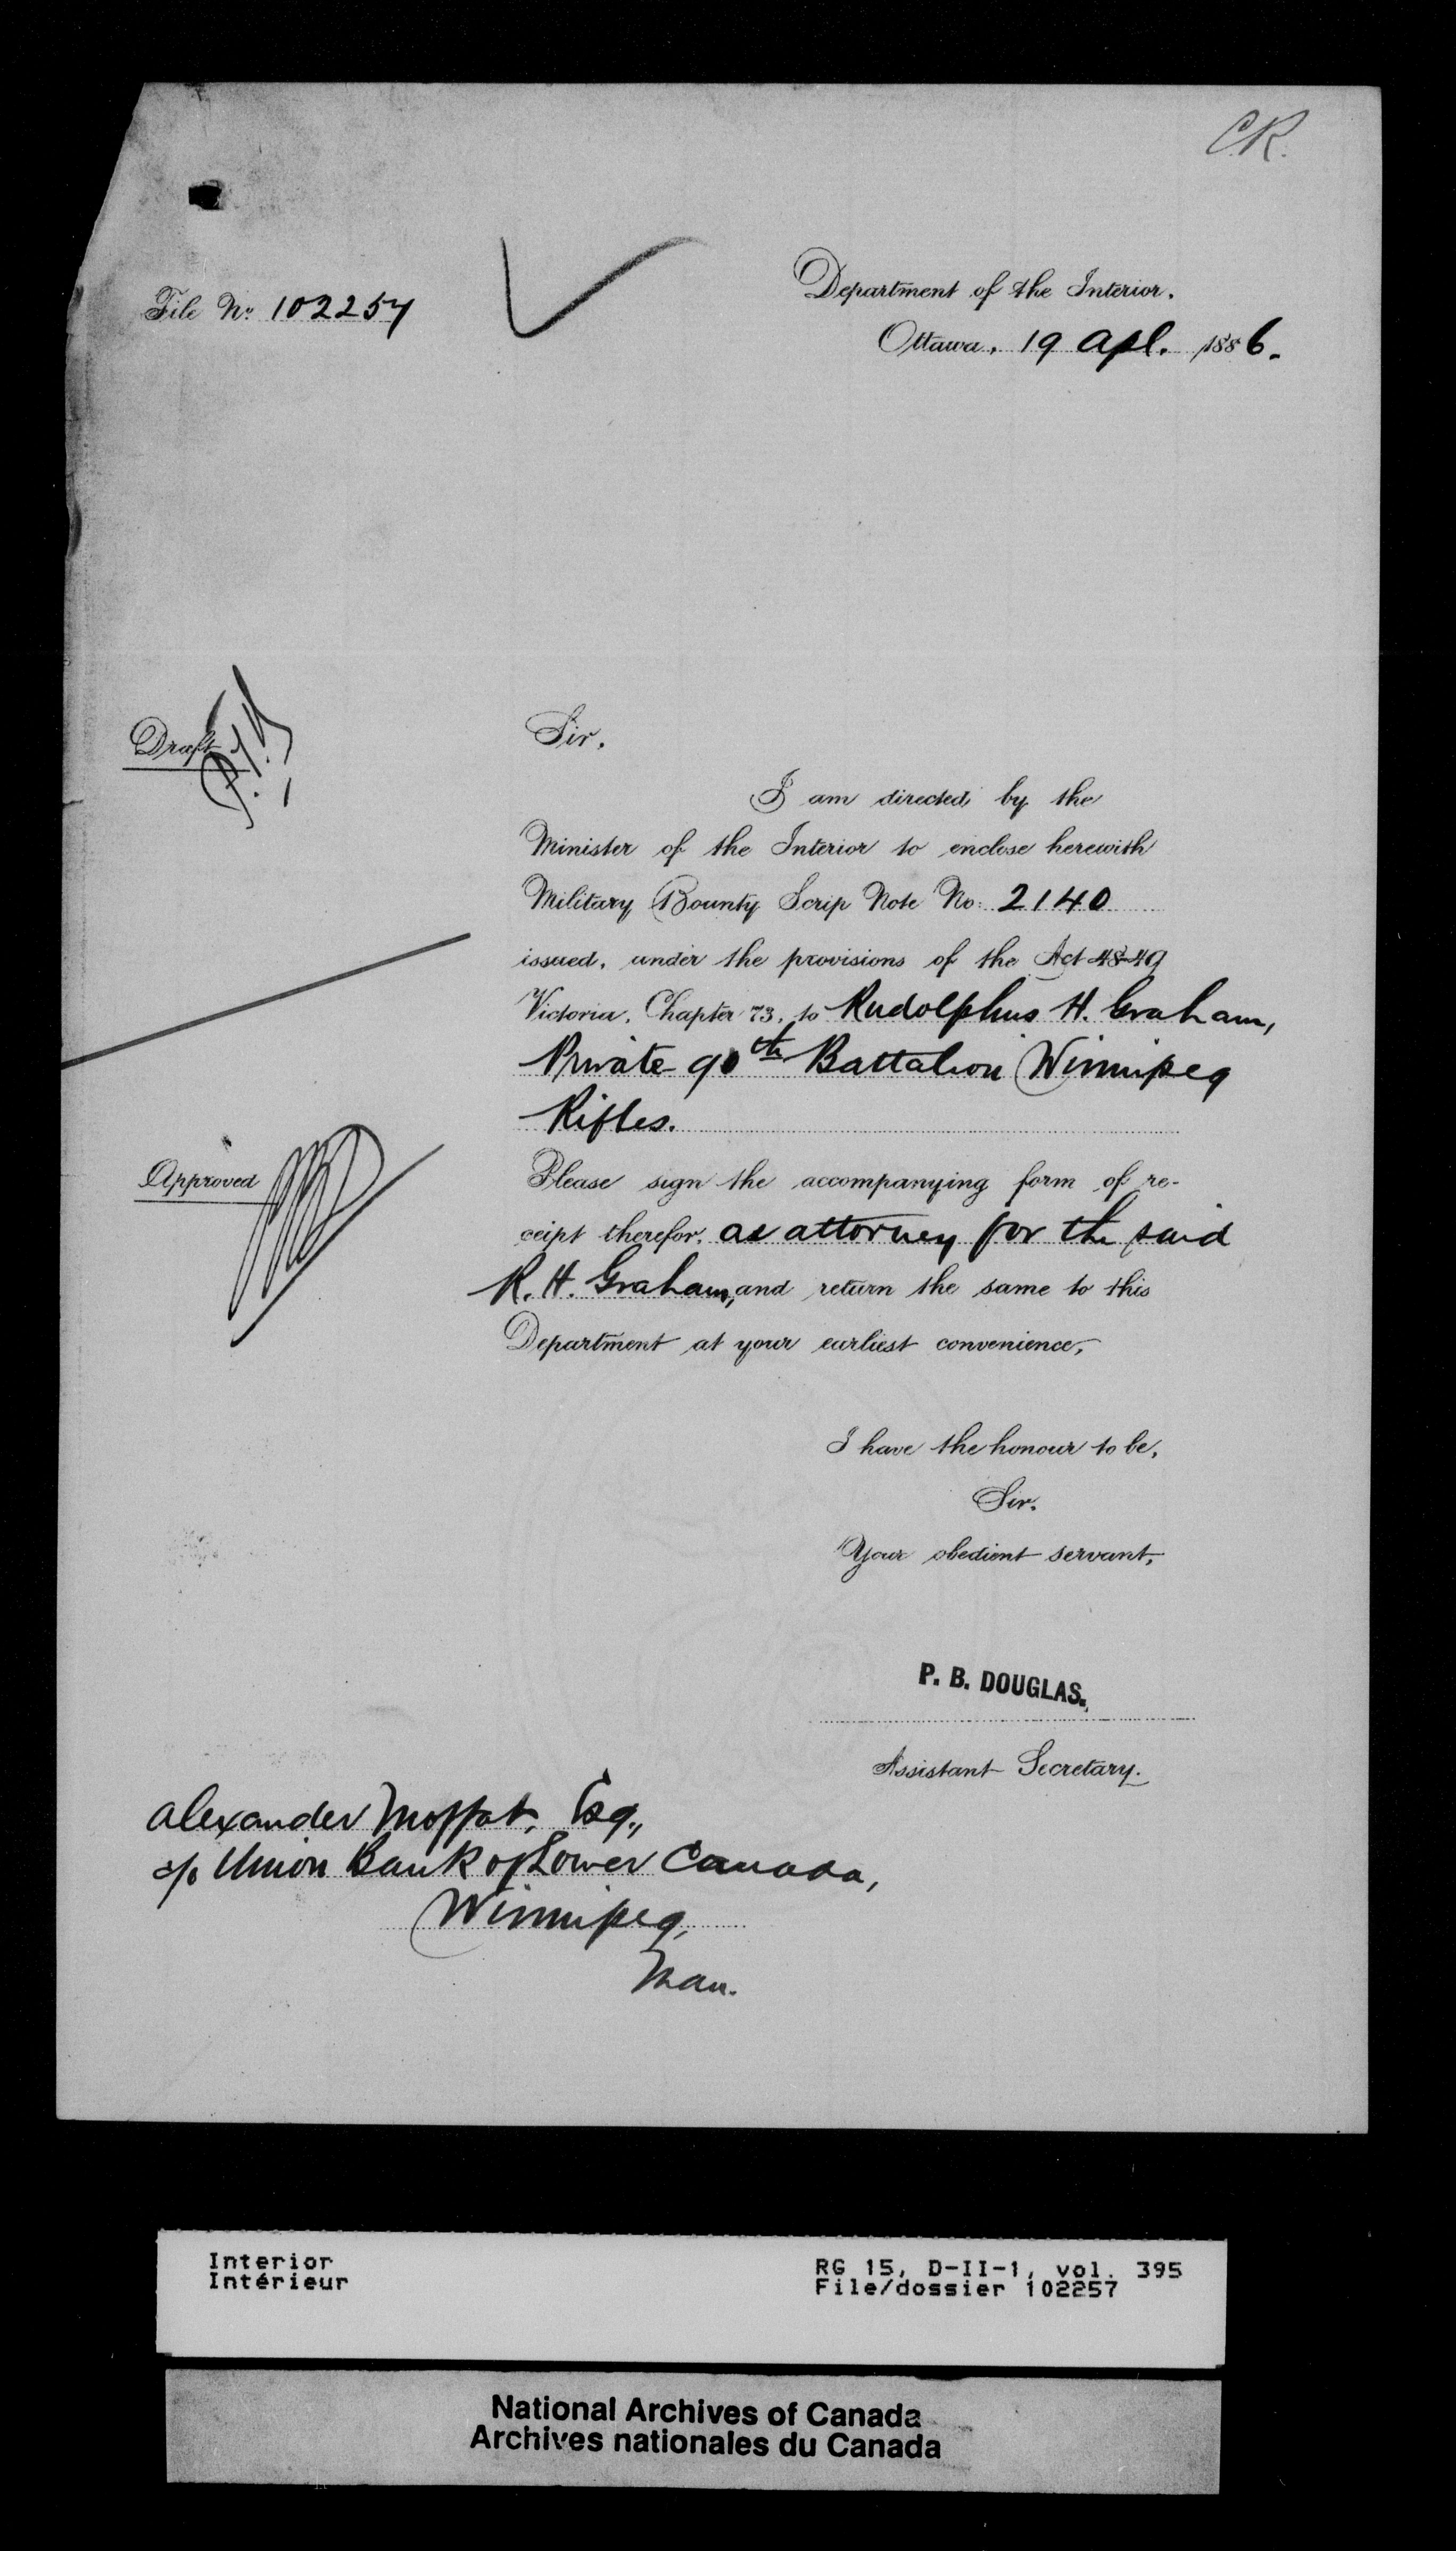 C.R.
File No. 102257
Department of the Interior.
Ottawa, 19 Apl. 1886.
Draft
Sir,
I am directed by the
Minister of the Interior to enclose herewith
Military Bounty Scrip Note No. 2140
issued, under the provisions of the Act 48-49
Victoria, Chapter 73, to Rudolphus H. Graham,
Private 90th Battalion Winnipeg
Rifles.
Approved
Please sign the accompanying form of re-
ceipt therefor, as attorney for the said
R. H. Graham, and return the same to this
Department at your earliest convenience,
I have the honour to be,
Sir,
Your obedient servant,
P. B. DOUGLAS.
Assistant Secretary.
Alexander Moffat, Esq.,
c/o Union Bank of Lower Canada,
Winnipeg,
Man.
Interior
Intérieur
RG 15, D-II-1, vol. 395
File/dossier 102257
National Archives of Canada
Archives nationales du Canada